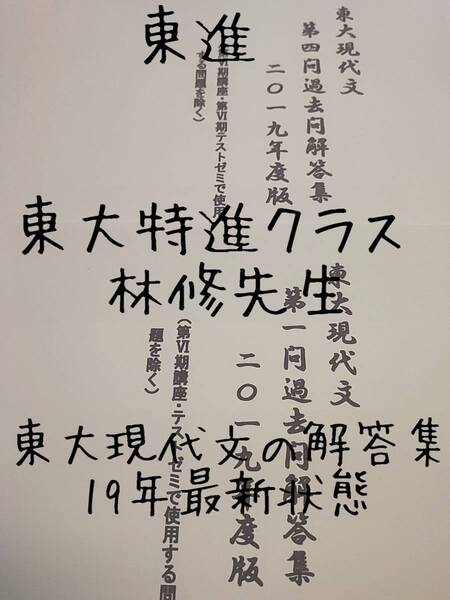 東進
東大特進クラス
林修先生
東大現代文の解答集
19年最新状態
東大現代文
第四問過去問解答集
二〇一九年度版
（第Ⅵ期講座・第Ⅵ期テストゼミで使用
する問題を除く）
東大現代文
第一問過去問解答集
二〇一九年度版
（第Ⅵ期講座・テストゼミで使用する問
題を除く）